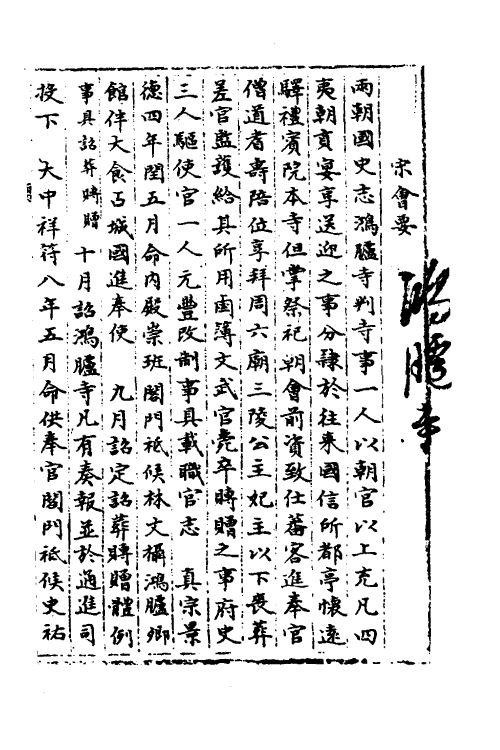 宋會要
鴻臚寺
兩朝國史志鴻臚寺判寺事一人以朝官以上充凡四
夷朝貢宴享送迎之事分隸於往來國信所都亭懷遠
驛禮賓院本寺但掌祭祀朝會前資致仕蕃客進奉官
僧道耆壽陪位享拜周六廟三陵公主妃主以下喪葬
差官監護給其所用鹵簿文武官薨卒賻贈之事府史
三人驅使官一人元豐改制事具載職官志 真宗景
德四年閏五月命內殿崇班閤門祗候林文欇鴻臚卿
館伴大食占城國進奉使 九月詔定詔葬賻贈體例
事具詔葬賻贈 十月詔鴻臚寺凡有奏報並於通進司
投下 大中祥符八年五月命供奉官閤門祗候史祐